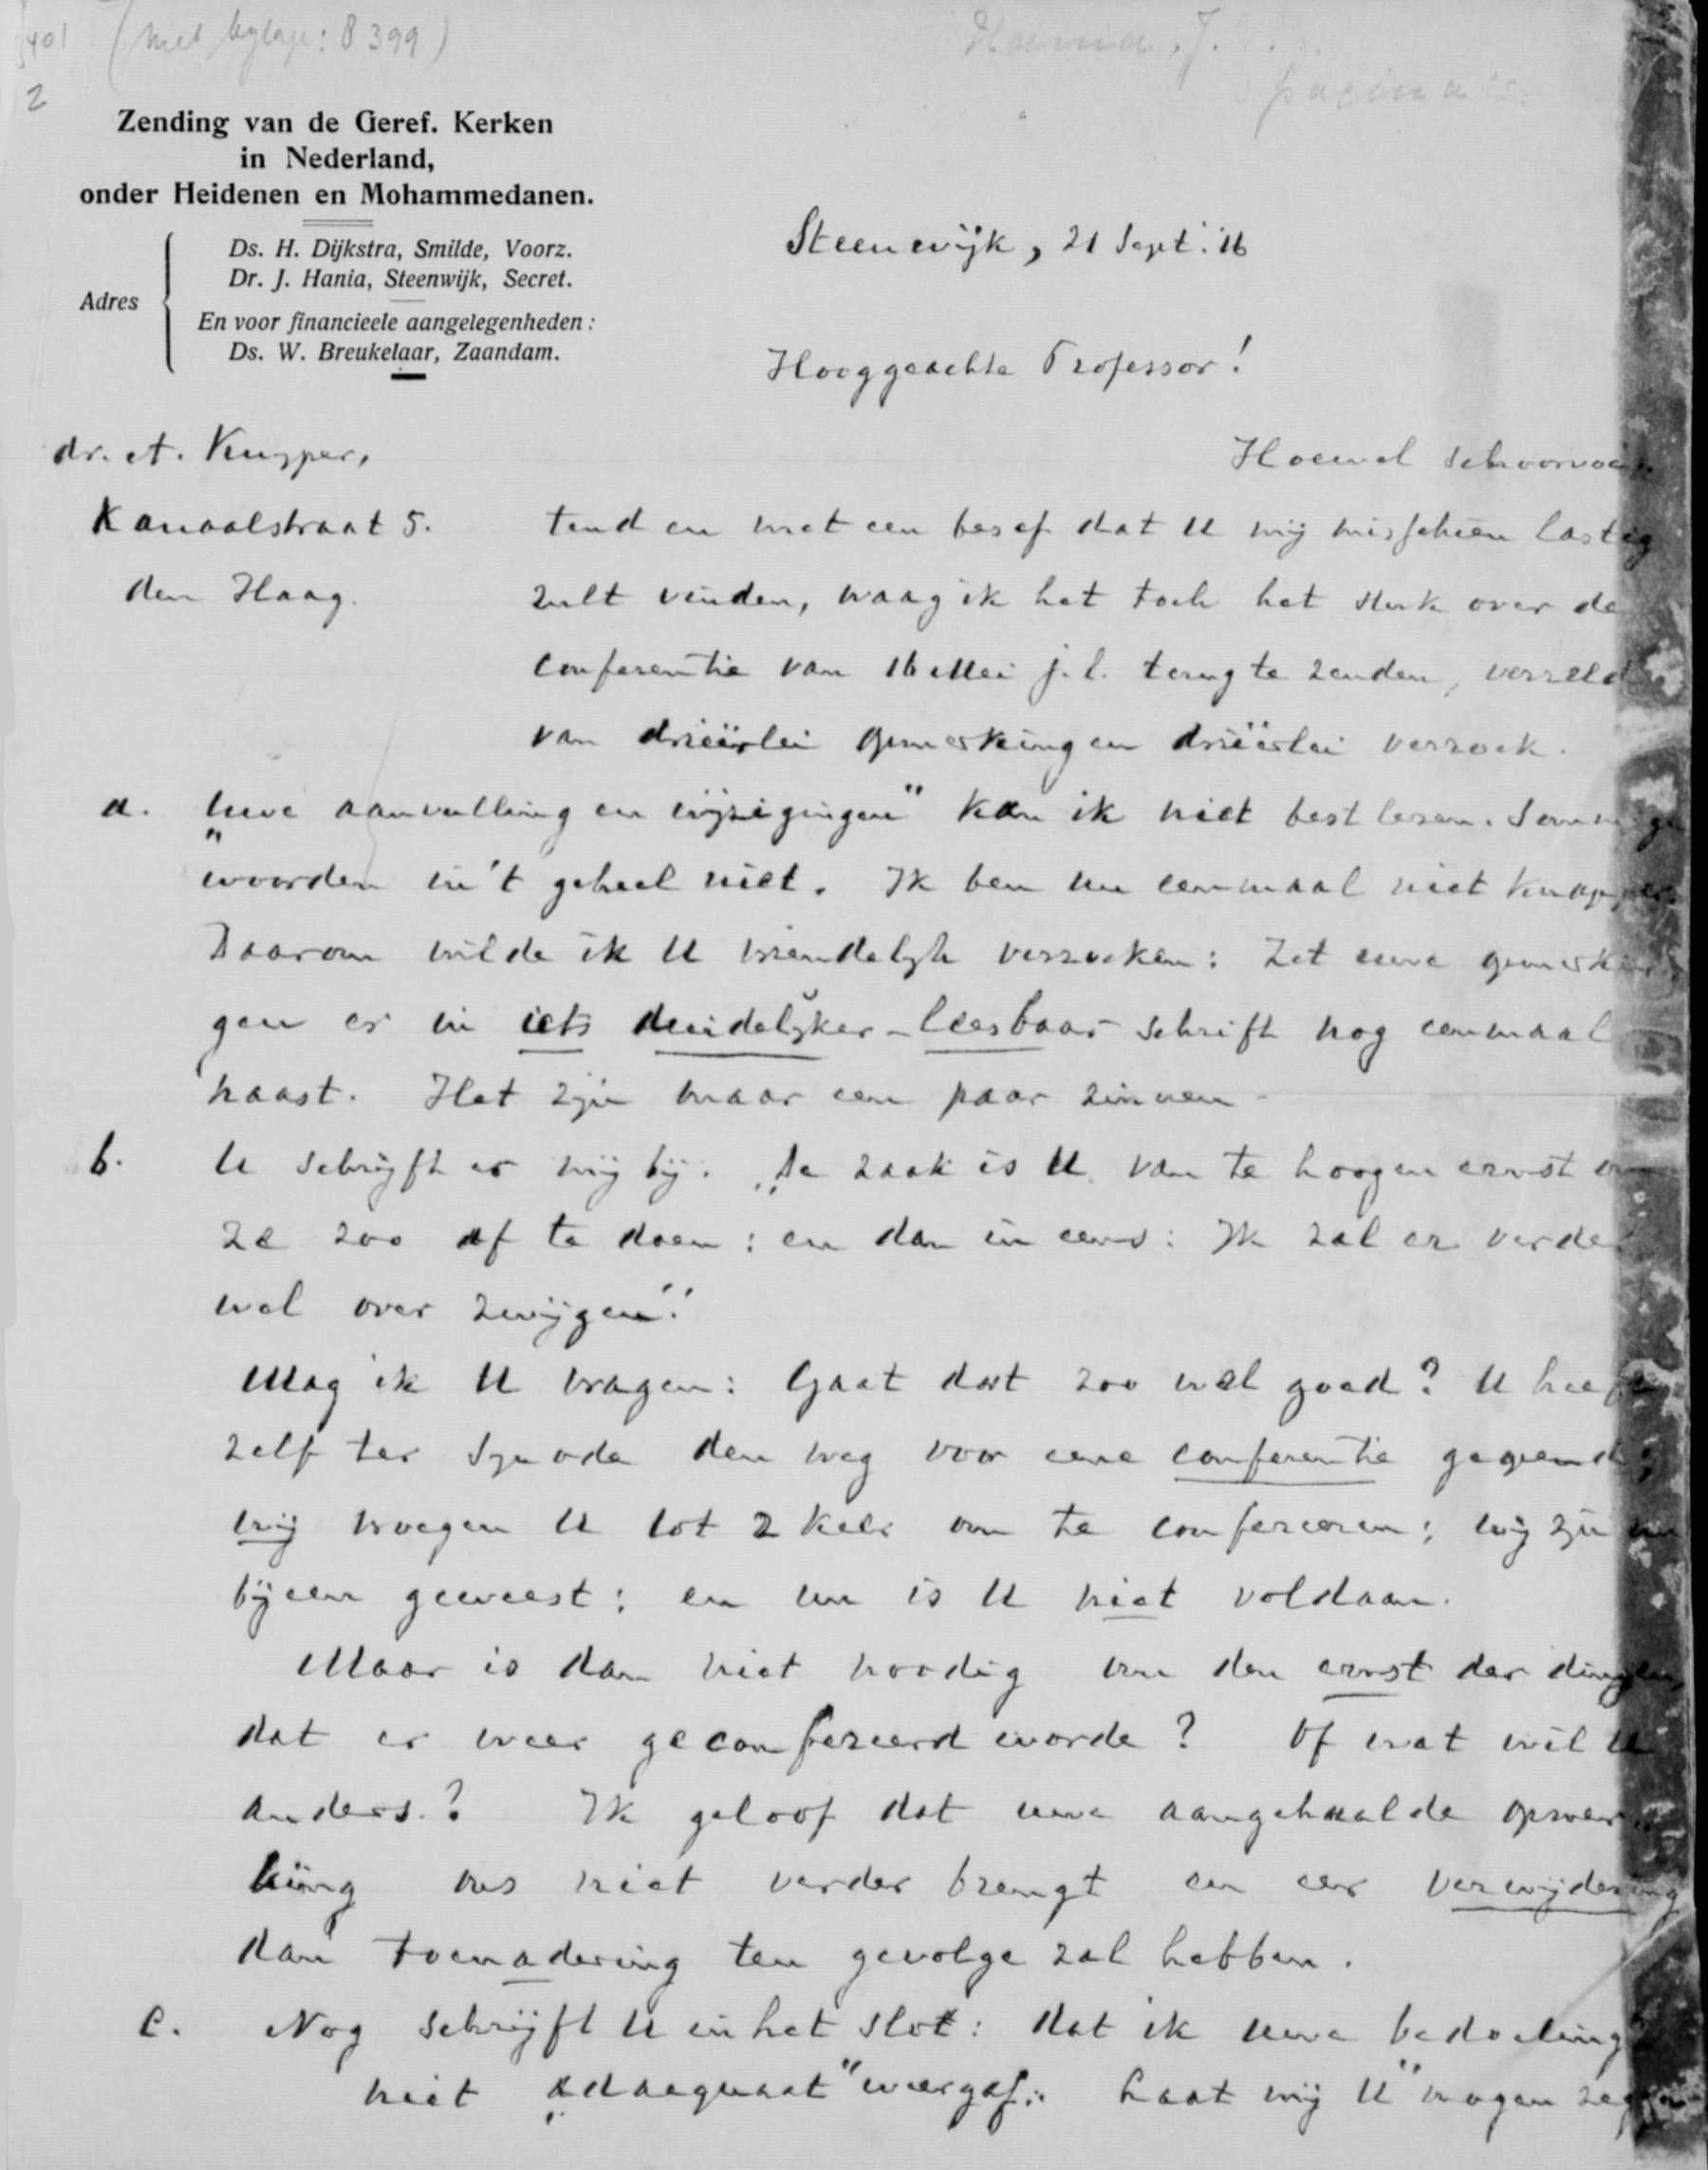 (met bylage: 8399)
2
Zending van de Geref. Kerken
in Nederland,
onder Heidenen en Mohammedanen.
Adres
Ds. H. Dijkstra, Smilde, Voorz.
Dr. J. Hania, Steenwijk, Secret.
En voor financieele aangelegenheden:
Ds. W. Breukelaar, Zaandam.
Steenwijk, 21 Sept. '16
Hooggeachte Professor!
dr. A. Kuyper,
Kanaalstraat 5.
den Haag.
Hoewel schoorvoe
tend en met een besef dat U mij misschien lastig
zult vinden, waag ik het toch het stuk over de
conferentie van 16 Mei j.l. terug te zenden, verzeld
van drieërlei opmerking en drieërlei verzoek.
a. „Uwe aanvulling en wijzigingen" kan ik niet best lezen. Sommige
woorden in 't geheel niet. Ik ben nu eenmaal niet knapper.
Daarom wilde ik U vriendelijk verzoeken: Zet uwe opmerkin
gen er in iets duidelijker-leesbaar schrift nog eenmaal
naast. Het zijn maar een paar zinnen
b. U schrijft er mij bij: „De zaak is U. van te hoogen ernst om
ze zoo af te doen: en dan in eens: Ik zal er verder
wel over zwijgen".
Mag ik U vragen: Gaat dat zoo wel goed? U heeft
zelf ter Synode den weg voor eene conferentie geopend;
wij vroegen U tot 2 keer om te confereeren; wij zijn
bijeen geweest: en nu is U niet voldaan.
Maar is dan niet noodig om den ernst der dingen,
dat er weer geconfereerd worde? Of wat wil U
anders? Ik geloof dat uwe aangehaalde opmer
king ons niet verder brengt en eer verwijdering
dan toenadering ten gevolge zal hebben.
c. Nog schrijft U in het slot: dat ik uwe bedoeling
niet „adaequaat" weergaf. Laat mij U mogen zeggen